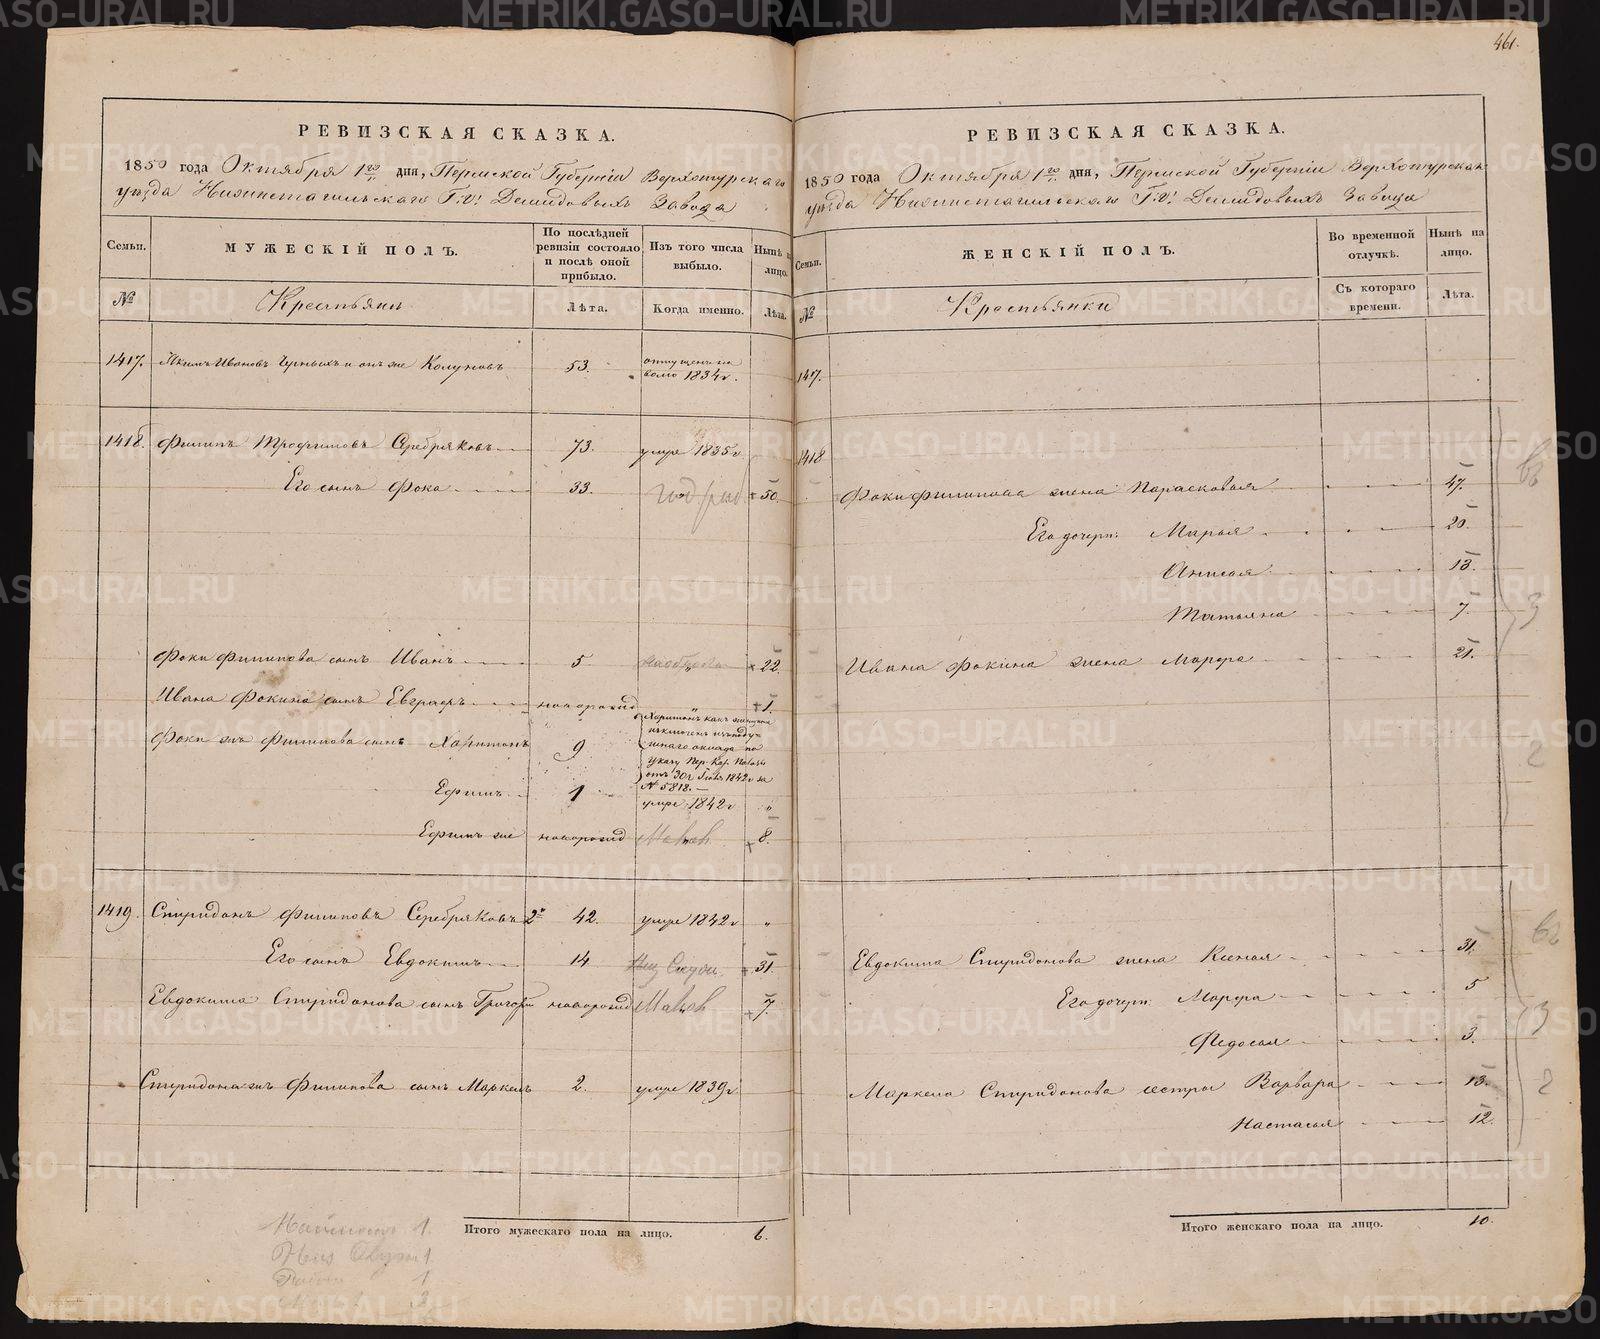 461.
РЕВИЗСКАЯ СКАЗКА.
1850 года Октября 1го дня, Пермской Губерніи Верхотурскаго
уѣзда Нижнетагильскаго Г.г. Демидовыхъ Завода
Семьи.
МУЖЕСКІЙ ПОЛЪ.
По послѣдней ревизіи состояло и послѣ оной прибыло.
Изъ того числа выбыло.
Нынѣ на лицо.
№
Крестьяне
Лѣта.
Когда именно.
Лѣта.
1417. Якимъ Ивановъ Черныхъ и онъ же Колуновъ 53. отпущенъ на волю 1834 г.
1418. Филипъ Трофимовъ Серебряковъ 73. умре 1835 г
Его сынъ Фока 33. 50.
Фоки Филипова сынъ Иванъ 5 22.
Ивана Фокина сынъ Евграфъ новорожд 1.
Фоки жъ Филипова сынъ Харитонъ 9 Харитонъ какъ
исключенъ изъ поду-
шнаго оклада по
указу Пер. Каз. Палаты
отъ 30г 1842 г за
№ 5818.
Ефимъ 1 умре 1842 г "
Ефимъ же новорожд 8.
1419. Спиридонъ Филиповъ Серебряковъ 2й 42. умре 1842 г "
Его сынъ Евдокимъ 14. 31.
Евдокима Спиридонова сынъ Григорій новорожд 7.
Спиридона жъ Филипова сынъ Маркелъ 2. умре 1839 г.
Итого мужескаго пола на лицо. 6.
РЕВИЗСКАЯ СКАЗКА.
1850 года Октября 1го дня, Пермской Губерніи Верхотурскаго
уѣзда Нижнетагильскаго Г.г. Демидовыхъ Завода
Семьи.
ЖЕНСКІЙ ПОЛЪ.
Во временной отлучкѣ.
Нынѣ на лицо.
№
Крестьянки
Съ котораго времени.
Лѣта.
1417.
1418
Фоки Филипова жена Парасковья 47.
Его дочери: Марья 20.
Анисья 13.
Татьяна 7.
Ивана Фокина жена Марфа 21.
Евдокима Спиридонова жена Ксенья 31.
Его дочери: Марфа 5
Федосья 3.
Маркела Спиридонова сестры Варвара 13.
Настасья 12.
Итого женскаго пола на лицо. 10.
METRIKI.GASO-URAL.RU